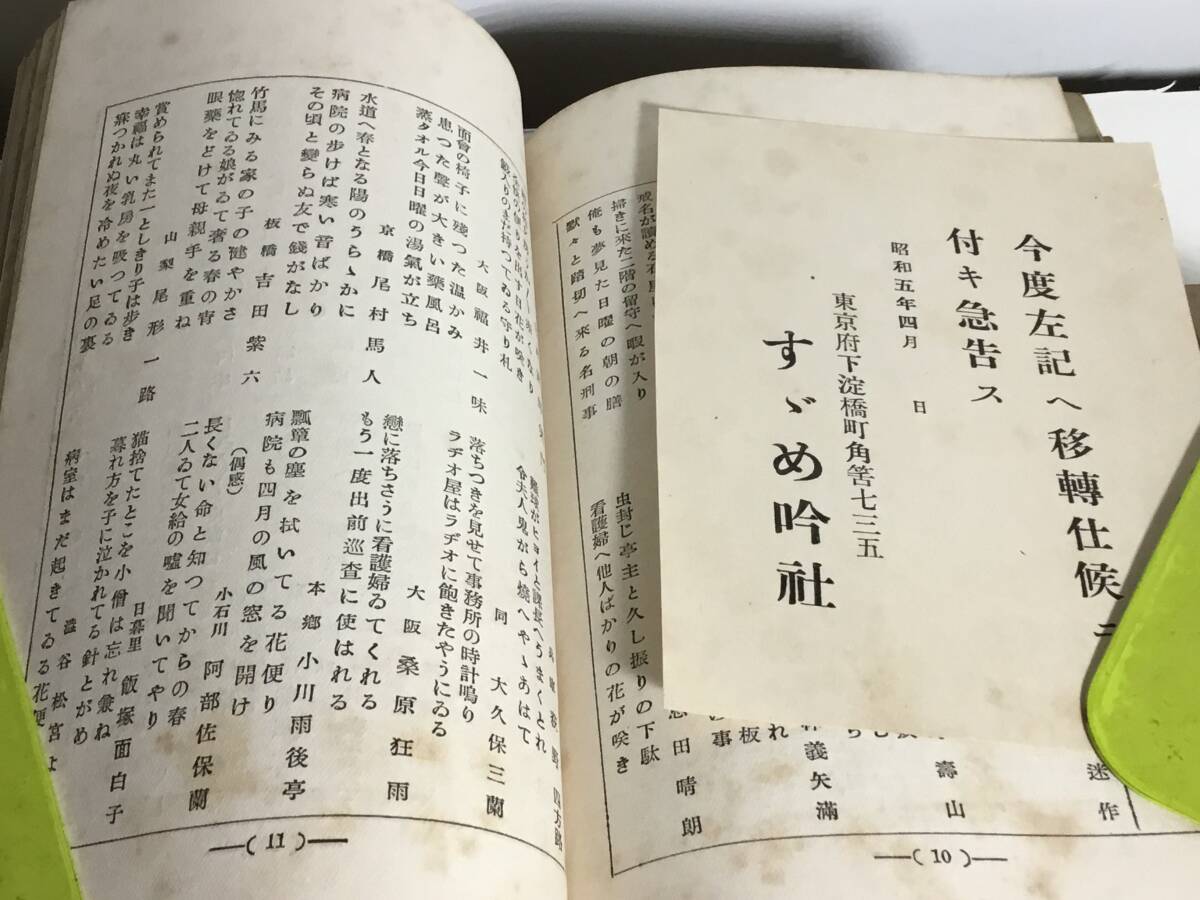 今度左記へ移轉仕候ニ
付キ急告ス
昭和五年四月　日
東京府下淀橋町角筈七三五
すゞめ吟社
掃きに來た二階の留守へ暇が入り
俺も夢見た日曜の朝の膳
默々と踏切へ來る名刑事
虫封じ亭主と久し振りの下駄
看護婦へ他人ばかりの花が咲き
迷作
壽山
義矢滿
田晴朗
(10)
大阪 福井一味
面會の椅子に殘つた温かみ
思つた聲が大きい藥風呂
蒸タオル今日日曜の湯氣が立ち
京橋 尾村馬人
水道へ春となる陽のうらゝかに
病院の歩けば寒い音ばかり
その頃と變らぬ友で錢がなし
板橋 吉田紫六
竹馬にみる家の子の健やかさ
惚れてゐる娘がゐて奢る春の宵
眼藥をどけて母親手を重ね
山梨 尾形一路
賞められてまた一としきり子は歩き
幸福は丸い乳房を吸つてゐる
寐つかれぬ夜を冷めたい足の裏
令夫人鬼がら燒へやゝあはて
同 大久保三蘭
落ちつきを見せて事務所の時計鳴り
ラヂオ屋はラヂオに飽きたやうにゐる
大阪 桑原狂雨
戀に落ちさうに看護婦ゐてくれる
もう一度出前巡査に使はれる
本鄕 小川雨後亭
瓢簞の塵を拭いてる花便り
病院も四月の風の窓を開け
(偶感)
小石川 阿部佐保蘭
長くない命と知つてからの春
二人ゐて女給の嘘を聞いてやり
日暮里 飯塚面白子
猫捨てたとこを小僧は忘れ兼ね
暮れ方を子に泣かれてる針とがめ
澁谷 松宮よ
病室はまだ起きてゐる花便
(11)